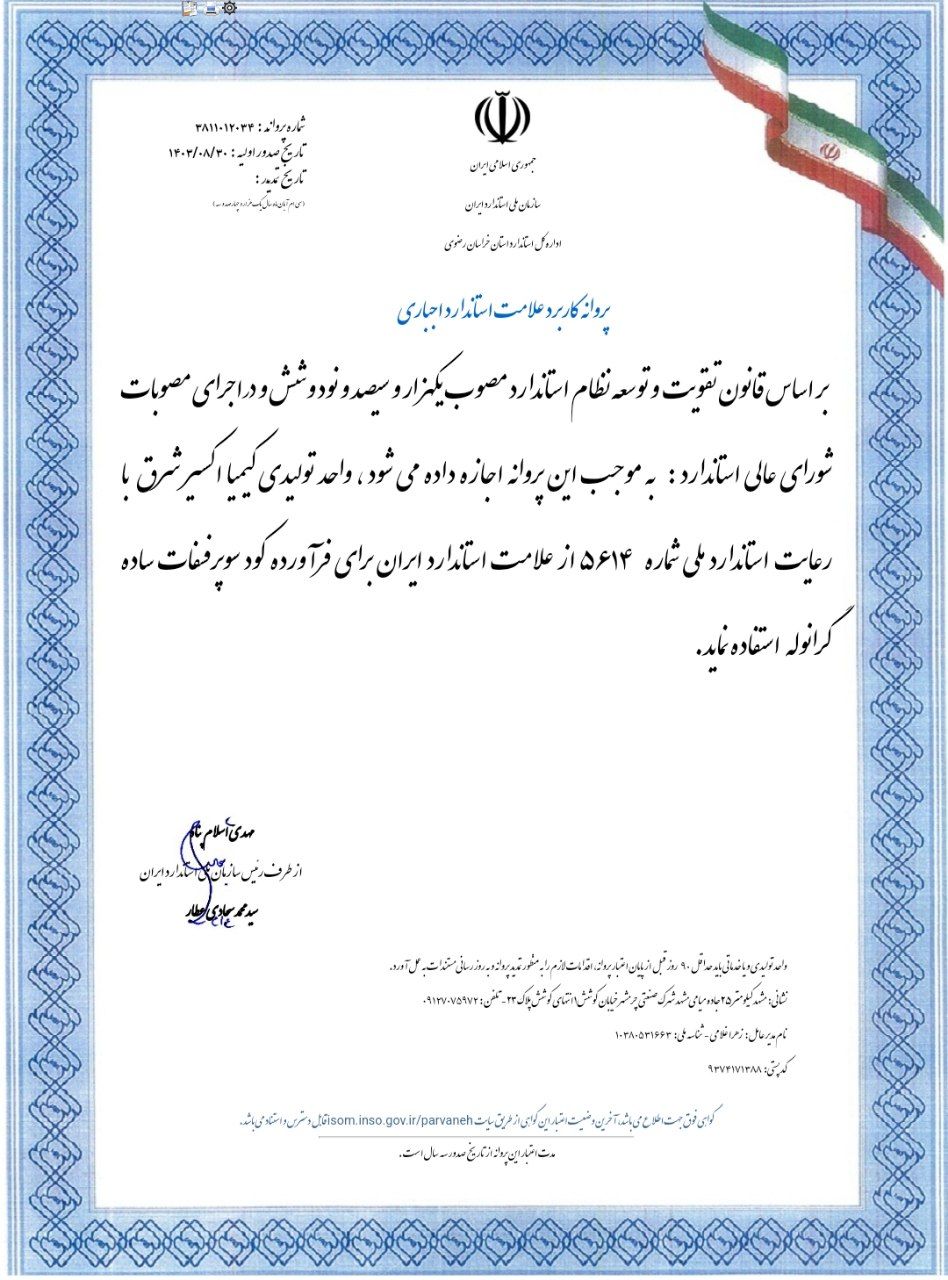 شماره پروانه : ۳۸۱۱۰۱۲۰۳۴
تاریخ صدور اولیه : ۱۴۰۳/۰۸/۳۰
تاریخ تمدید :
(سی ام آبان ماه سال یک هزار و چهارصد و سه)
جمهوری اسلامی ایران
سازمان ملی استاندارد ایران
اداره کل استاندارد استان خراسان رضوی
پروانه کاربرد علامت استاندارد اجباری
بر اساس قانون تقویت و توسعه نظام استاندارد مصوب یکهزار و سیصد و نود و شش و در اجرای مصوبات
شورای عالی استاندارد : به موجب این پروانه اجازه داده می شود ، واحد تولیدی کیمیا اکسیر شرق با
رعایت استاندارد ملی شماره ۵۶۱۴ از علامت استاندارد ایران برای فرآورده کود سوپرفسفات ساده
گرانوله استفاده نماید.
مهدی اسلام پناه
از طرف رئیس سازمان ملی استاندارد ایران
سید محمد سجادی عطار
واحد تولیدی و یا خدماتی باید حداقل ۹۰ روز قبل از پایان اعتبار پروانه، اقدامات لازم را به منظور تمدید پروانه و به روز رسانی مستندات به عمل آورد.
نشانی: مشهد کیلومتر ۲۵ جاده میامی مشهد شهرک صنعتی چرمشهر خیابان کوشش ۱ انتهای کوشش پلاک ۲۳ - تلفن: ۰۹۱۲۷۰۷۵۹۷۲
نام مدیر عامل: زهرا غلامی - شناسه ملی: ۱۰۳۸۰۵۳۱۶۶۳
کد پستی: ۹۳۷۴۱۷۱۳۸۸
گواهی فوق جهت اطلاع می باشد، آخرین وضعیت اعتبار این گواهی از طریق سایت isom.inso.gov.ir/parvaneh قابل دسترس و استناد می باشد.
مدت اعتبار این پروانه از تاریخ صدور سه سال است.